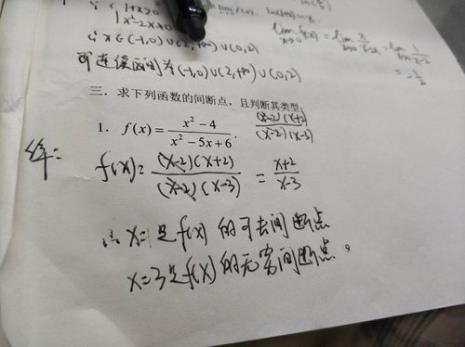 1+x>0
x²-2x≠0
∴ x∈(-1,0)∪(2,+∞)∪(0,2)
可连续区间为(-1,0)∪(2,+∞)∪(0,2)
三. 求下列函数的间断点,且判断其类型
1. f(x)=(x²-4)/(x²-5x+6).
(x-2)(x+2)/(x-2)(x-3)
解:
f(x)=(x-2)(x+2)/(x-2)(x-3)=(x+2)/(x-3)
∴ x= 是f(x)的可去间断点
x=3是f(x)的无穷间断点。